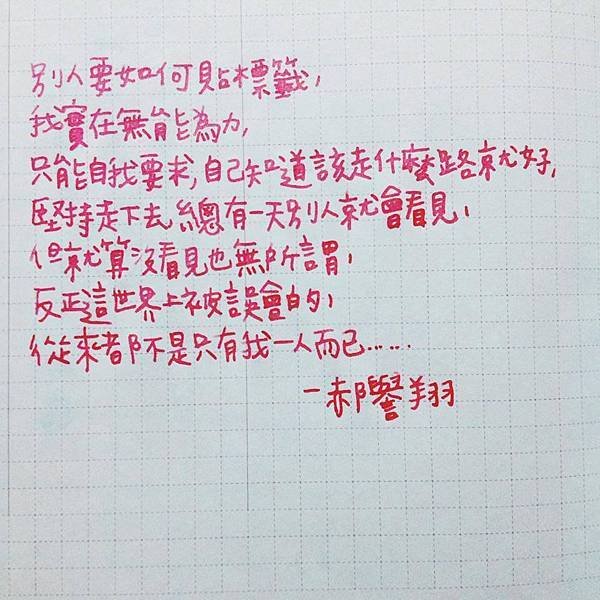 別人要如何貼標籤,
我實在無能為力,
只能自我要求,自己知道該走什麼路就好,
堅持走下去,總有一天別人就會看見,
但就算沒看見也無所謂,
反正這世界上被誤會的,
從來都不是只有我一人而已......
-郝譽翔